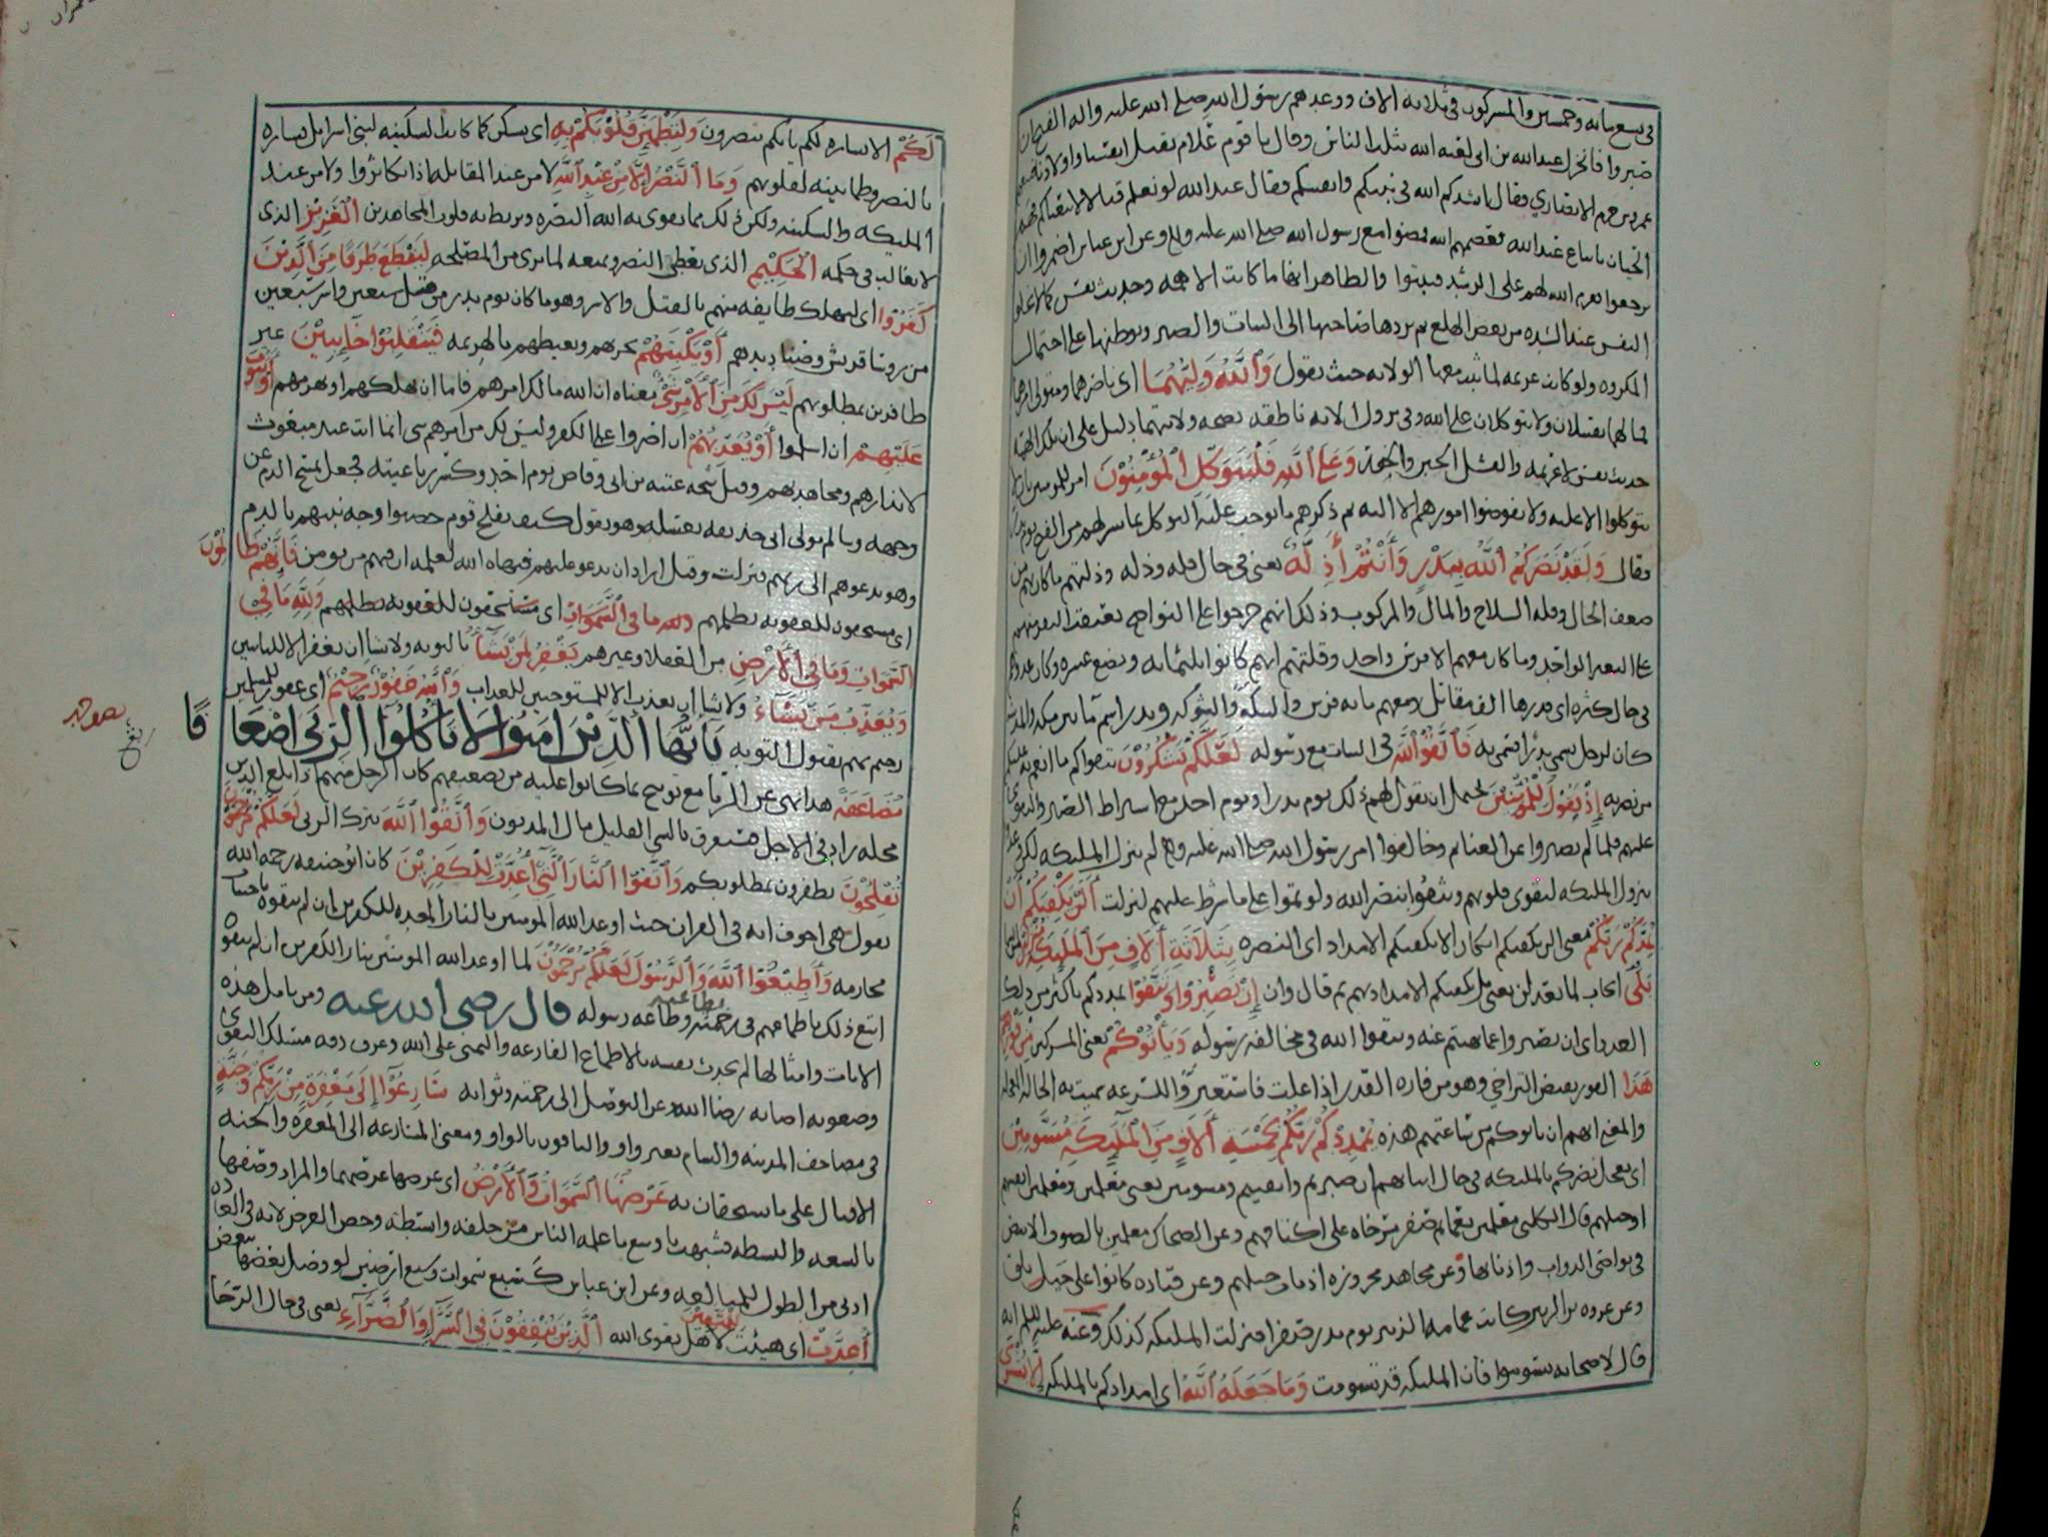 في تسع مائه وخمسين والمشركون في ثلاثه الاف ووعدهم رسول الله صلى الله عليه واله الفتح ان
صبروا فانخزل عبدالله بن ابي لعنه الله بثلث الناس وقال يا قوم علام نقتل انفسنا واولادنا فتبعهم
عمرو بن حزم الانصاري فقال انشدكم الله في نبيكم وانفسكم فقال عبدالله لو نعلم قتالا لاتبعناكم فهم
الحيان باتباع عبدالله فعصمهم الله فمضوا مع رسول الله صلى الله عليه وسلم وعن ابن عباس اضمروا ان
يرجعوا فعزم الله لهم على الرشد فثبتوا والظاهر انها ما كانت الا همه وحديث نفس كما لا تخلوا
النفس عند الشده من بعض الهلع ثم يردها صاحبها الى الثبات والصبر ويوطنها على احتمال
المكروه ولو كانت عزيمه لما ثبتت معها الولايه حيث يقول وَاللَّهُ وَلِيُّهُمَا اي ناصرهما ومتولي امرهما
فما لهما يفشلان ولا يتوكلان على الله وفي نزول الايه
حديث نفس لا عزيمه والفشل الجبن والخور وَعَلَى اللَّهِ فَلْيَتَوَكَّلِ الْمُؤْمِنُونَ امر للمومنين بان لا
يتوكلوا الا عليه ولا يفوضوا امورهم الا اليه ثم ذكرهم ما يوجب عليه التوكل مما يسر لهم من الفتح يوم بدر
فقال وَلَقَدْ نَصَرَكُمُ اللَّهُ بِبَدْرٍ وَأَنْتُمْ أَذِلَّةٌ يعني في حال قله وذله وذلتهم ما كان بهم من
ضعف الحال وقله السلاح والمال والمركوب وذلك انهم خرجوا على النواضح يعتقب النفر منهم
على البعير الواحد وما كان معهم الا فرس واحد وقلتهم انهم كانوا ثلثمائه وبضع عشره وكان عدوهم
في حال كثره اي قدرها الف مقاتل ومعهم مايه فرس والشكه والشوكه وبدر اسم ما بين مكه والمدينه
كان لرجل يسمى بدرا فسمي به فَاتَّقُوا اللَّهَ في الثبات مع رسوله لَعَلَّكُمْ تَشْكُرُونَ بتقواكم ما انعم به عليكم
من نصره إِذْ تَقُولُ لِلْمُؤْمِنِينَ يحتمل ان يقول لهم ذلك يوم بدر او يوم احد مع اشتراط الصبر والتقوى
عليهم فلما لم يصبروا عن الغنائم وخالفوا امر رسول الله صلى الله عليه وسلم لم تنزل المليكه
نزول المليكه لتقوى قلوبهم ويثقوا بنصر الله ولو تموا على ما شرط عليهم لنزلت أَلَنْ يَكْفِيَكُمْ أَنْ
يُمِدَّكُمْ رَبُّكُمْ معنى الن يكفيكم انكار الا يكفيكم الامداد اي النصره بِثَلَاثَةِ آلَافٍ مِنَ الْمَلَائِكَةِ مُنْزَلِينَ
بَلَى ايجاب لما بعد لن يعني بل يكفيكم الامداد بهم ثم قال وان إِنْ تَصْبِرُوا وَتَتَّقُوا يمددكم باكثر من ذلك
العدد اي ان تصبروا عما نهيتم عنه وتتقوا الله في مخالفه رسوله وَيَأْتُوكُمْ يعني المشركين مِنْ فَوْرِهِمْ
هَذَا الفور نقيض التراخي وهو من فاره القدر اذا غلت فاستعير للسرعه
والمعنى انهم ان ياتوكم من ساعتهم هذه يُمْدِدْكُمْ رَبُّكُمْ بِخَمْسَةِ آلَافٍ مِنَ الْمَلَائِكَةِ مُسَوِّمِينَ
اي يعجل نصركم بالمليكه في حال اتيانهم ان صبرتم واتقيتم ومسومين يعني معلمين ومعلمين انفسهم
او خيلهم قال الكلبي معلمين بعمائم صفر مرخاه على اكتافهم وعن الضحاك معلمين بالصوف الابيض
في نواصي الدواب واذنابها وعن مجاهد مجزوزه اذناب خيلهم وعن قتاده كانوا على خيل بلق
وعن عروه بن الزبير كانت عمامه الزبير يوم بدر صفرا فنزلت المليكه كذلك وعنه عليه السلم انه
قال لاصحابه تسوموا فان المليكه قد تسومت وَمَا جَعَلَهُ اللَّهُ اي امدادكم بالمليكه إِلَّا بُشْرَى
لَكُمْ الا بشاره لكم بانكم تنصرون وَلِتَطْمَئِنَّ قُلُوبُكُمْ بِهِ اي تسكن كما كانت السكينه لبني اسرايل بشاره
بالنصر وطمانينه لقلوبهم وَمَا النَّصْرُ إِلَّا مِنْ عِنْدِ اللَّهِ لا من عند المقاتله اذا تكاثروا ولا من عند
المليكه والسكينه ولكن ذلك مما يقوى به الله النصره ويربط به قلوب المجاهدين الْعَزِيزِ الذي
لا يغالب في حكمه الْحَكِيمِ الذي يعطي النصر ويمنعه لما يرى من المصلحه لِيَقْطَعَ طَرَفًا مِنَ الَّذِينَ
كَفَرُوا اي ليهلك طايفه منهم بالقتل والاسر وهو ما كان يوم بدر من قتل سبعين واسر سبعين
من روسا قريش وصناديدهم أَوْ يَكْبِتَهُمْ يخزيهم ويغيظهم بالهزيمه فَيَنْقَلِبُوا خَائِبِينَ غير
ظافرين بمطلوبهم لَيْسَ لَكَ مِنَ الْأَمْرِ شَيْءٌ معناه ان الله مالك امرهم فاما ان يهلكهم او يهزمهم أَوْ يَتُوبَ
عَلَيْهِمْ ان اسلموا أَوْ يُعَذِّبَهُمْ ان اصروا على الكفر وليس لك من امرهم شي انما انت عبد مبعوث
لانذارهم ومجاهدتهم وقيل شجه عتبه بن ابي وقاص يوم احد وكسر رباعيته فجعل يمسح الدم عن
وجهه وسالم مولى ابي حذيفه يغسله وهو يقول كيف يفلح قوم خضبوا وجه نبيهم بالدم
وهو يدعوهم الى ربهم فنزلت وقيل اراد ان يدعو عليهم فنهاه الله لعلمه ان فيهم من يومن فَإِنَّهُمْ ظَالِمُونَ
اي مستحقون للعقوبه بظلمهم ولله ما في السموات اي مستحقون للعقوبه بظلمهم وَلِلَّهِ مَا فِي
السَّمَوَاتِ وَمَا فِي الْأَرْضِ من العقلا وغيرهم يَغْفِرُ لِمَنْ يَشَاءُ بالتوبه ولا يشا ان يغفر الا للتايبين
وَيُعَذِّبُ مَنْ يَشَاءُ ولا يشا ان يعذب الا المستوجبين للعذاب وَاللَّهُ غَفُورٌ رَحِيمٌ اي غفور للمسلمين
رحيم بهم بقبول التوبه يَا أَيُّهَا الَّذِينَ آمَنُوا لَا تَأْكُلُوا الرِّبَى أَضْعَافًا
مُضَاعَفَةً هذا نهي عن الربا مع توبيخ بما كانوا عليه من تضعيفهم كان الرجل منهم اذا بلغ الدين
محله زاد في الاجل فتستغرق بالشي القليل مال المديون وَاتَّقُوا اللَّهَ بترك الربى لَعَلَّكُمْ تُرْحَمُونَ
تُفْلِحُونَ تظفرون بمطلوبكم وَاتَّقُوا النَّارَ الَّتِي أُعِدَّتْ لِلْكَافِرِينَ كان ابو حنيفه رحمه الله
يقول هي اخوف ايه في القران حيث اوعد الله المومنين بالنار المعده للكفرين ان لم يتقوه باجتناب
محارمه وَأَطِيعُوا اللَّهَ وَالرَّسُولَ لَعَلَّكُمْ تُرْحَمُونَ لما اوعد الله المومنين بنار الكفرين ان لم يتقوه
اتبع ذلك باطماعهم في رحمته بطاعته وطاعه رسوله قال رضي الله عنه ومن تامل هذه
الايات وامثالها لم يحدث نفسه بالاطماع الفارغه والتمني على الله وعرف دقه مسلك التقوى
وصعوبه اصابه رضا الله وعز التوصل الى رحمته وثوابه سَارِعُوا إِلَى مَغْفِرَةٍ مِنْ رَبِّكُمْ وَجَنَّةٍ
في مصاحف المدينه والشام بغير واو والباقون بالواو ومعنى المسارعه الى المغفره والجنه
الاقبال على ما يستحقان به عَرْضُهَا السَّمَوَاتُ وَالْأَرْضُ اي عرضها عرضهما والمراد وصفها
بالسعه والبسطه فشبهت باوسع ما علمه الناس من خلقه وابسطه وخص العرض لانه في العاده
ادنى من الطول للمبالغه وعن ابن عباس كسبع سموات وسبع ارضين لو وصل بعضها ببعض
أُعِدَّتْ اي هيئت لِلْمُتَّقِينَ لاهل تقوى الله الَّذِينَ يُنْفِقُونَ فِي السَّرَّاءِ وَالضَّرَّاءِ يعني في حال الرخا